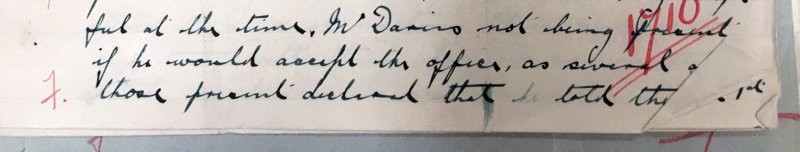 ful at the time, Mr Davies not being present
if he would accept the office, as several
7. those present declared that he told the
19/10